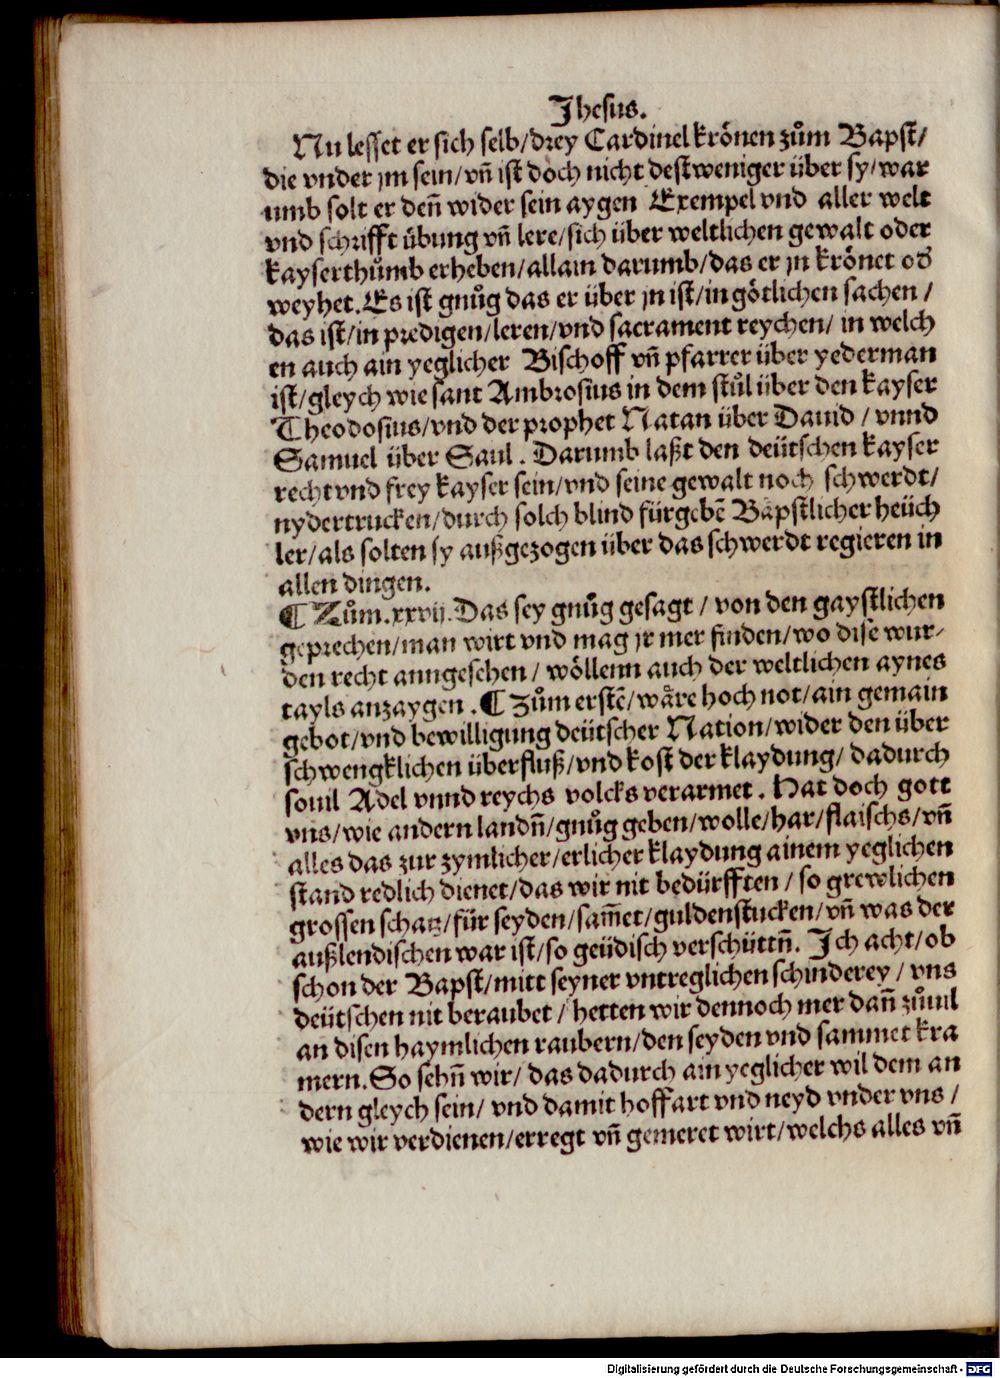 Jhesus.
Nu lesset er sich selb/drey Cardinel krönen zům Bapst/
die vnder jm sein/vñ ist doch nicht destweniger über sy/war
umb solt er deñ wider sein aygen Exempel vnd aller welt
vnd schrifft übung vñ lere/sich über weltlichen gewalt oder
kayserthůmb erheben/allain darumb/das er jn krönet od̕
weyhet. Es ist gnůg das er über jn ist/in götlichen sachen/
das ist/in predigen/leren/vnd sacrament reychen/ in welch
en auch ain yeglicher Bischoff vñ pfarrer über yederman
ist/gleych wie sant Ambrosius in dem stůl über den kayser
Theodosius/vnd der prophet Natan über Dauid / vnnd
Samuel über Saul. Darumb laßt den deütschen kayser
recht vnd frey kayser sein/vnd seine gewalt noch schwerdt/
nydertrucken/durch solch blind fürgebẽ Bäpstlicher heüch
ler/als solten sy außgezogen über das schwerdt regieren in
allen dingen.
¶ Zům.xxvij. Das sey gnůg gesagt / von den gaystlichen
geprechen/man wirt vnd mag jr mer finden/wo dise wur-
den recht anngesehen / wöllenn auch der weltlichen aynes
tayls anzaygen. ¶ Zům erstẽ/wäre hoch not/ain gemain
gebot/vnd bewilligung deütscher Nation/wider den über
schwengklichen überfluß/vnd kost der klaydung/ dadurch
souil Adel vnnd reychs volcks verarmet. Hat doch gott
vns/wie andern landñ/gnůg geben/wolle/har/flaischs/vñ
alles das zur zymlicher/erlicher klaydung ainem yeglichen
stand redlich dienet/das wir nit bedürfften / so grewlichen
grossen schatz/für seyden/sam̃et/guldenstucken/vñ was der
außlendischen war ist/so geüdisch verschüttñ. Ich acht/ob
schon der Bapst/mitt seyner vntreglichen schinderey / vns
deütschen nit beraubet / hetten wir dennoch mer dañ zůuil
an disen haymlichen raubern/den seyden vnd sammet kra
mern. So sehñ wir/ das dadurch ain yeglicher wil dem an
dern gleych sein/ vnd damit hoffart vnd neyd vnder vns /
wie wir verdienen/erregt vñ gemeret wirt/welchs alles vñ
Digitalisierung gefördert durch die Deutsche Forschungsgemeinschaft - DFG